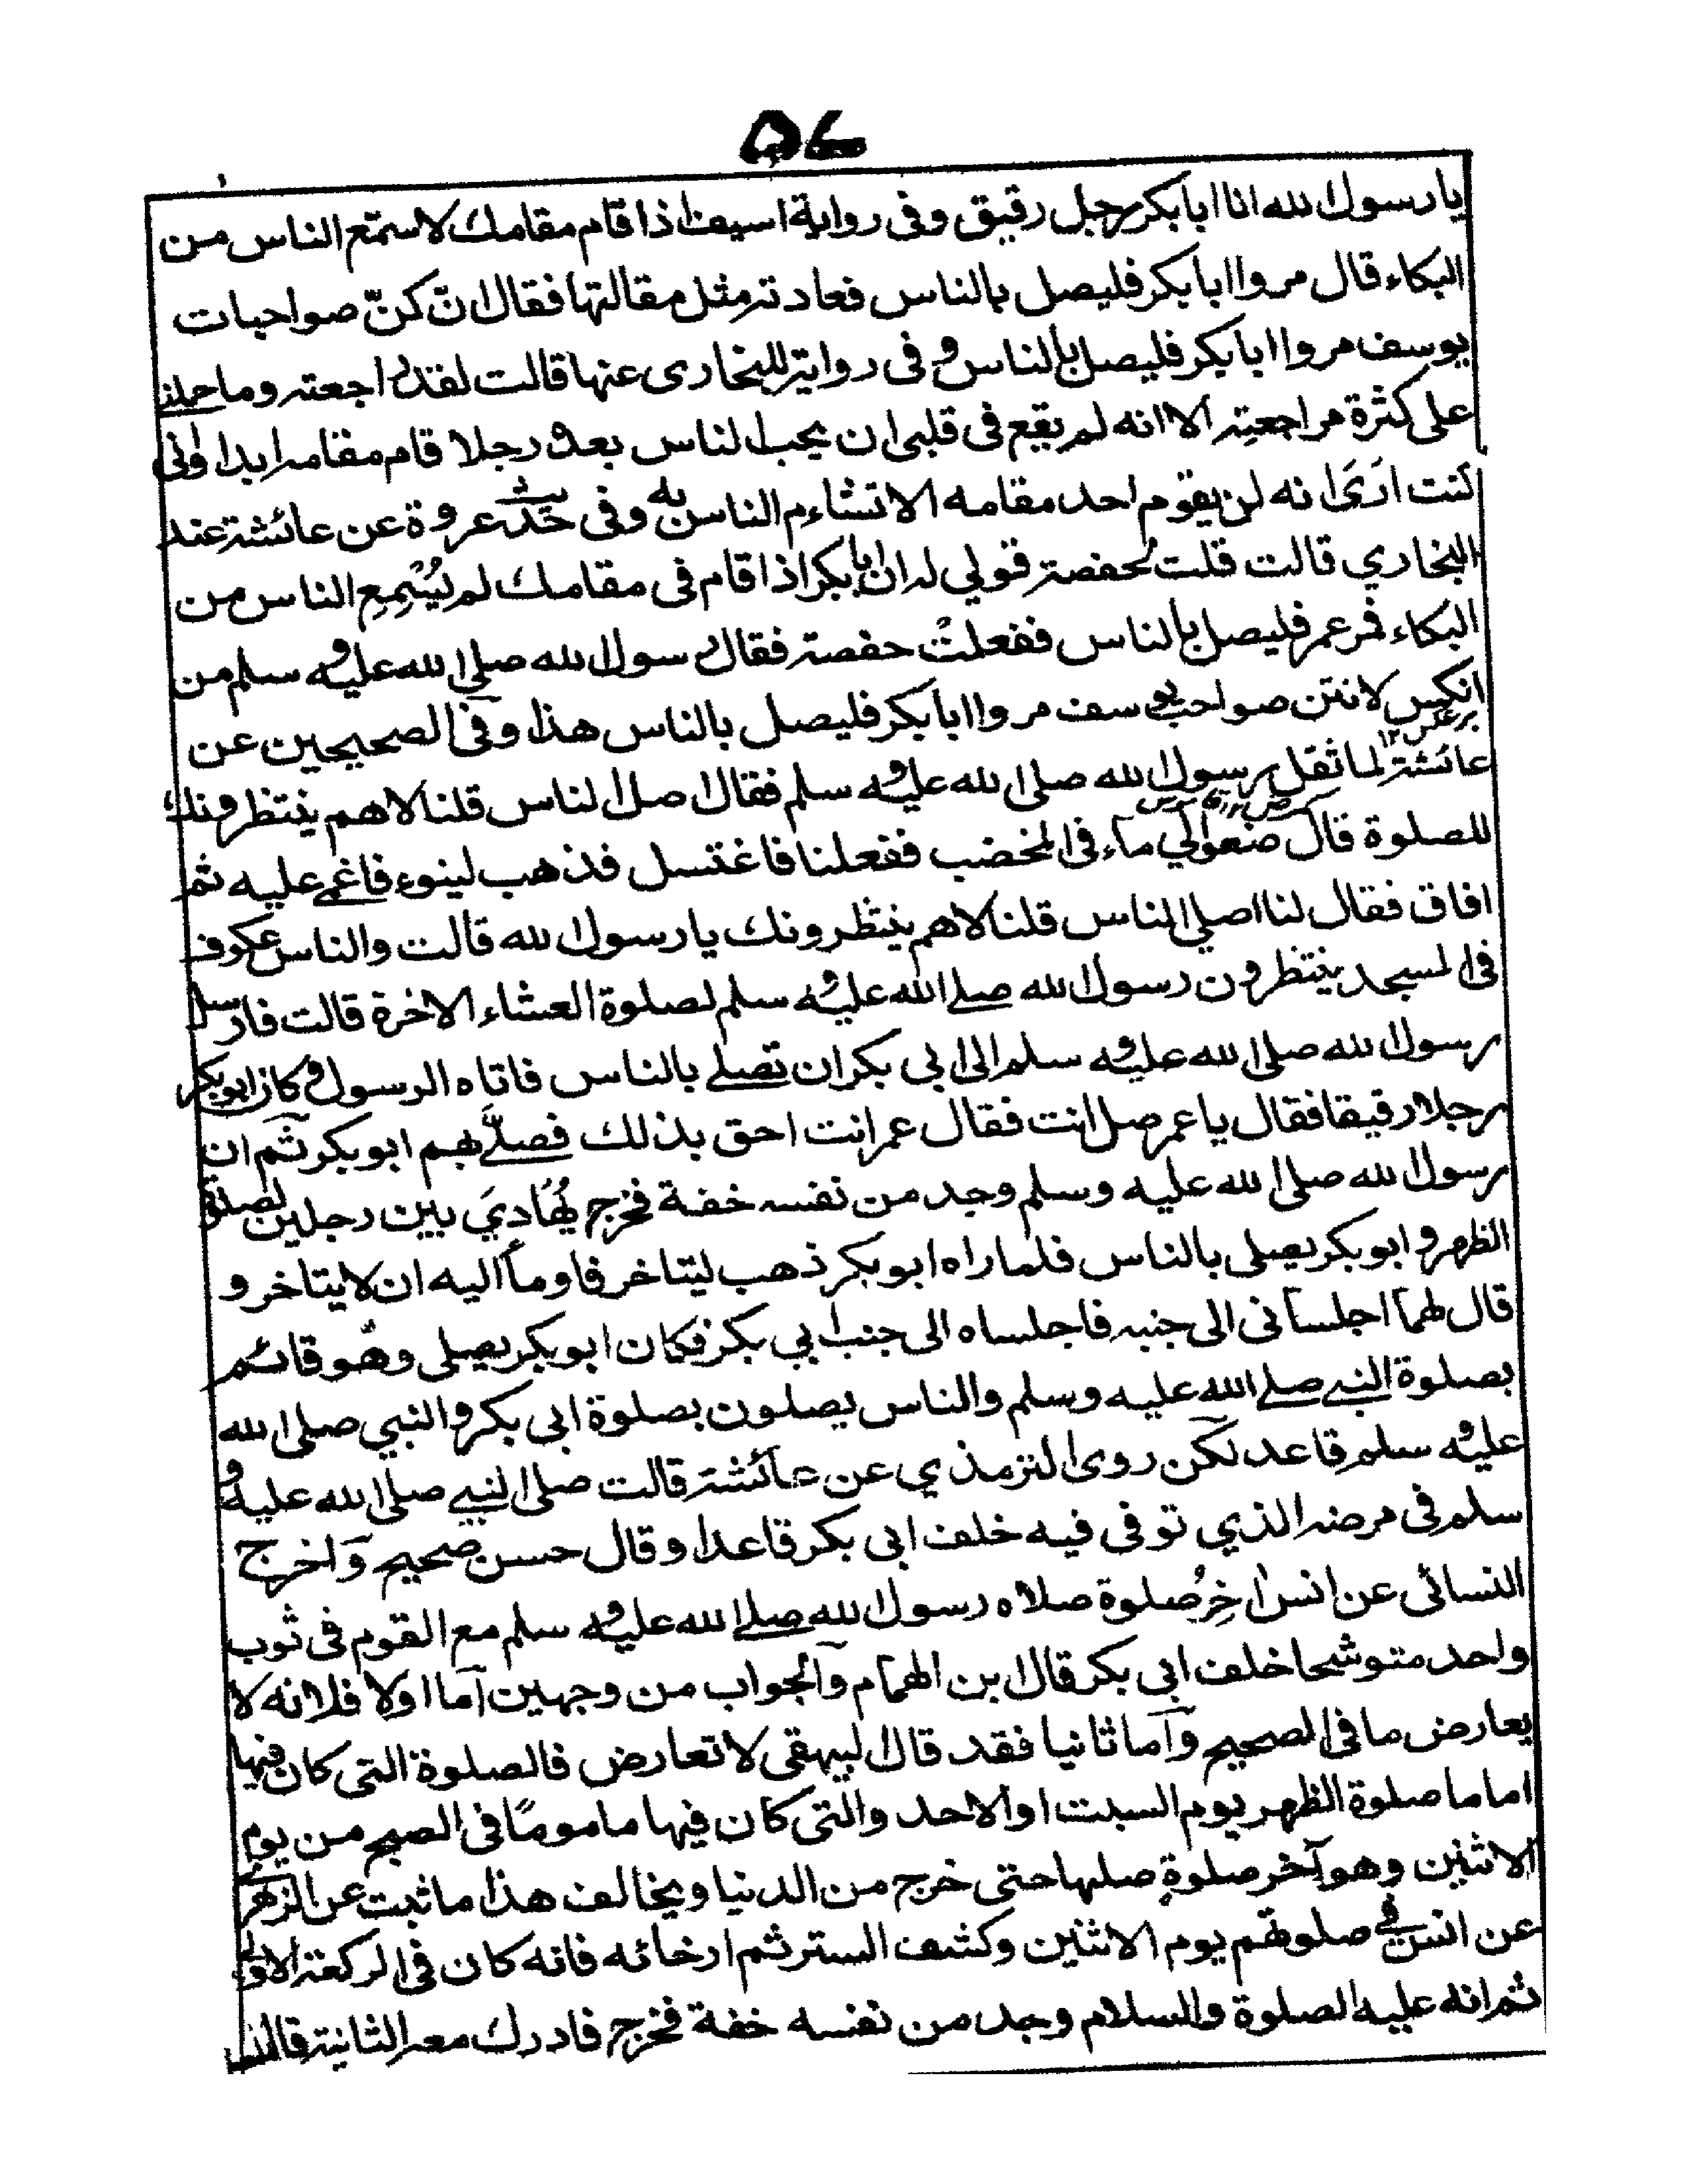 ٥٧
يا رسول الله ان ابا بكر رجل رقيق وفى رواية اسيف اذا قام مقامك لا ستمع الناس من
البكاء قال مروا ابا بكر فليصل بالناس فعادته مثل مقالتها فقال انّ كنّ صواحبات
يوسف مروا ابا بكر فليصل بالناس وفى رواية للبخارى عنها قالت لقد راجعته وما حملنے
على كثرة مراجعته الا انه لم يقع فى قلبى ان يحب الناس بعده رجلا قام مقامه ابدا وانى
كنت ارَى انه لن يقوم احد مقامه الا تشاءم الناس به وفى حديث عروة عن عائشة عند
البخاري قالت قلت لحفصة قولي له ان ابا بكر اذا قام فى مقامك لم يُسْمِعِ الناس من
البكاء فمر عمر فليصل بالناس ففعلتْ حفصة فقال رسول الله صلى الله عليه وسلم من
انكن لانتن صواحب يوسف مروا ابا بكر فليصل بالناس هذا وفى الصحيحين عن
عائشة لما ثقل رسول الله صلى الله عليه وسلم فقال اصل الناس قلنا لا هم ينتظرونك
للصلوة قال ضعوا لي ماء فى المخضب ففعلنا فاغتسل فذهب لينوء فاغمے عليه ثم
افاق فقال لنا اصلي الناس قلنا لا هم ينتظرونك يا رسول الله قالت والناس عكوف
فى المسجد ينتظرون رسول الله صلے الله عليه وسلم لصلوة العشاء الاخرة قالت فارسل
رسول الله صلى الله عليه وسلم الى ابي بكر ان تصلے بالناس فاتاه الرسول وكان ابو بكر
رجلا رقيقا فقال يا عمر صل انت فقال عمر انت احق بذلك فصلّے بهم ابو بكر ثم ان
رسول الله صلى الله عليه وسلم وجد من نفسه خفة فخرج يُهَادِيَ بين رجلين لصلوة
الظهر و ابو بكر يصلى بالناس فلما راه ابو بكر ذهب ليتاخر فاومأ اليه ان لا يتاخر و
قال لهما اجلسانى الى جنبه فاجلساه الى جنب ابي بكر فكان ابو بكر يصلى وهو قائم
بصلوة النبے صلے الله عليه وسلم والناس يصلون بصلوة ابى بكر والنبي صلى الله
عليه وسلم قاعد لكن روى الترمذي عن عائشة قالت صلى النبے صلى الله عليه و
سلم فى مرضه الذي توفى فيه خلف ابى بكر قاعدا وقال حسن صحيح واخرج
النسائى عن انس اٰخِرُ صلوة صلاه رسول الله صلے الله عليه وسلم مع القوم فى ثوب
واحد متوشحا خلف ابى بكر قال ابن الهمام والجواب من وجهين اما اولا فلانه لا
يعارض ما فى الصحيح واما ثانيا فقد قال البيهقى لا تعارض فالصلوة التى كان فيها
اماما صلوة الظهر يوم السبت او الاحد والتى كان فيها مامومًا فى الصبح من يوم
الاثنين وهو آخر صلوةٍ صلىها حتى خرج من الدنيا ويخالف هذا ما ثبت عن الزهرى
عن انس فى صلوتهم يوم الاثنين وكشف الستر ثم ارخائه فانه كان فى الركعة الاولى
ثم انه عليه الصلوة والسلام وجد من نفسه خفة فخرج فادرك معه الثانية